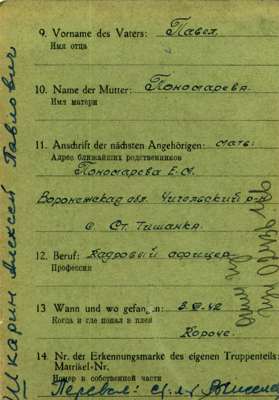 9. Vorname des Vaters: Павел
Имя отца
10. Name der Mutter: Пономарева
Имя матери
11. Anschrift der nächsten Angehörigen: мать:
Адрес ближайших родственников
Пономарева Е.М.
Воронежская обл. Чигольский р-н
с. Ст. Тишанка
12. Beruf: Кадровый офицер
Профессия
13 Wann und wo gefangen: 42
Когда и где попал в плен
Короче.
14. Nr. der Erkennungsmarke des eigenen Truppenteils:
Matrikel-Nr.
Номер в собственной части
Перевел:
Шкарин Алексей Павлович